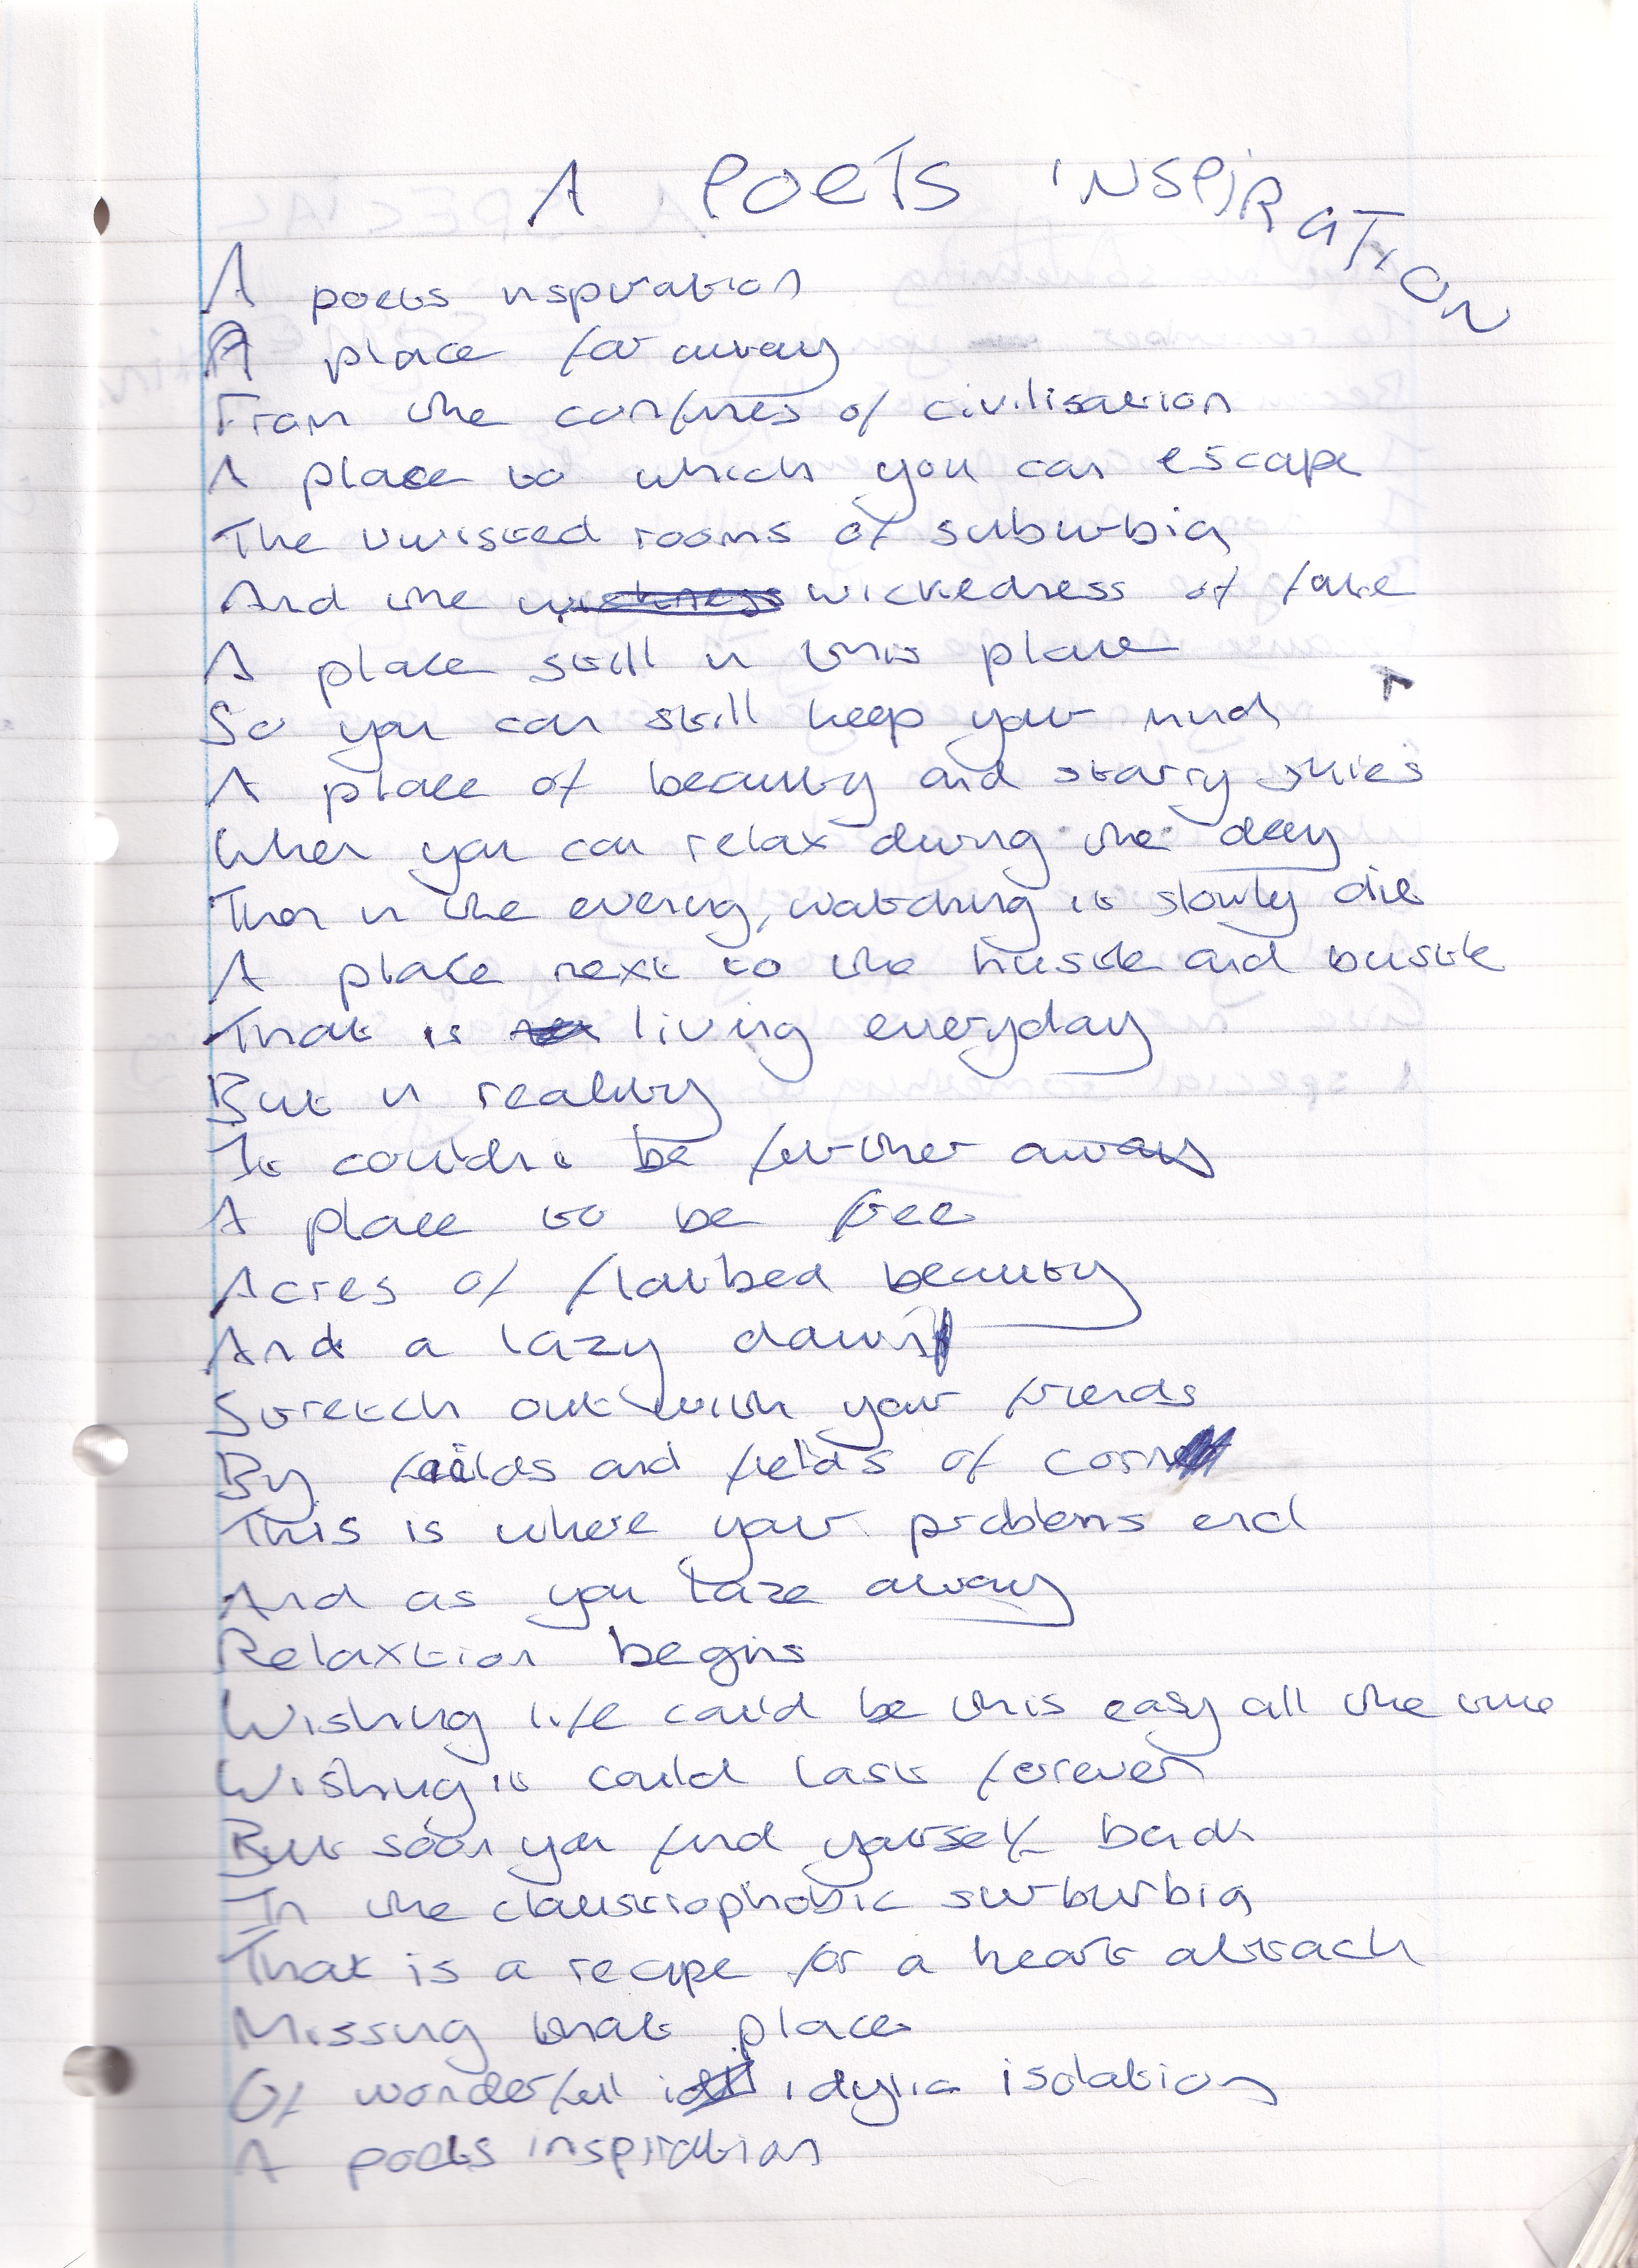 A POETS INSPIRATION
A poets inspiration
A place far away
From the confines of civilisation
A place to which you can escape
The twisted rooms of suburbia
And the wickedness of fate
A place still in this place
So you can still keep your mind
A place of beauty and starry skies
When you can relax during the day
Then in the evening, watching it slowly die
A place next to the hustle and bustle
That is living everyday
But in reality
It couldn't be further away
A place to be free
Acres of flatbed beauty
And a lazy dawn
Stretch out with your friends
By fields and fields of corn
This is where your problems end
And as you laze away
Relaxtion begins
Wishing life could be this easy all the time
Wishing it could last forever
But soon you find yourself back
In the claustrophobic surburbia
That is a recipe for a heart attack
Missing that place
Of wonderful idylic isolation
A poets inspiration